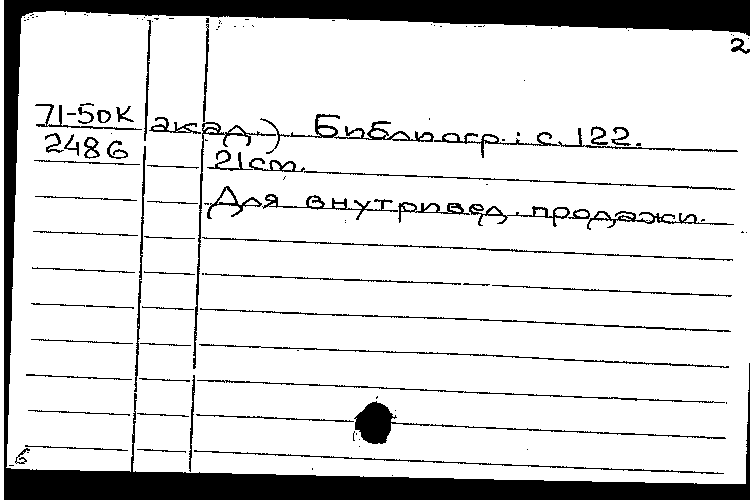 2
71-50к
2486
акад.). Библиогр.: с. 122.
21 см.
Для внутривед. продажи.
б